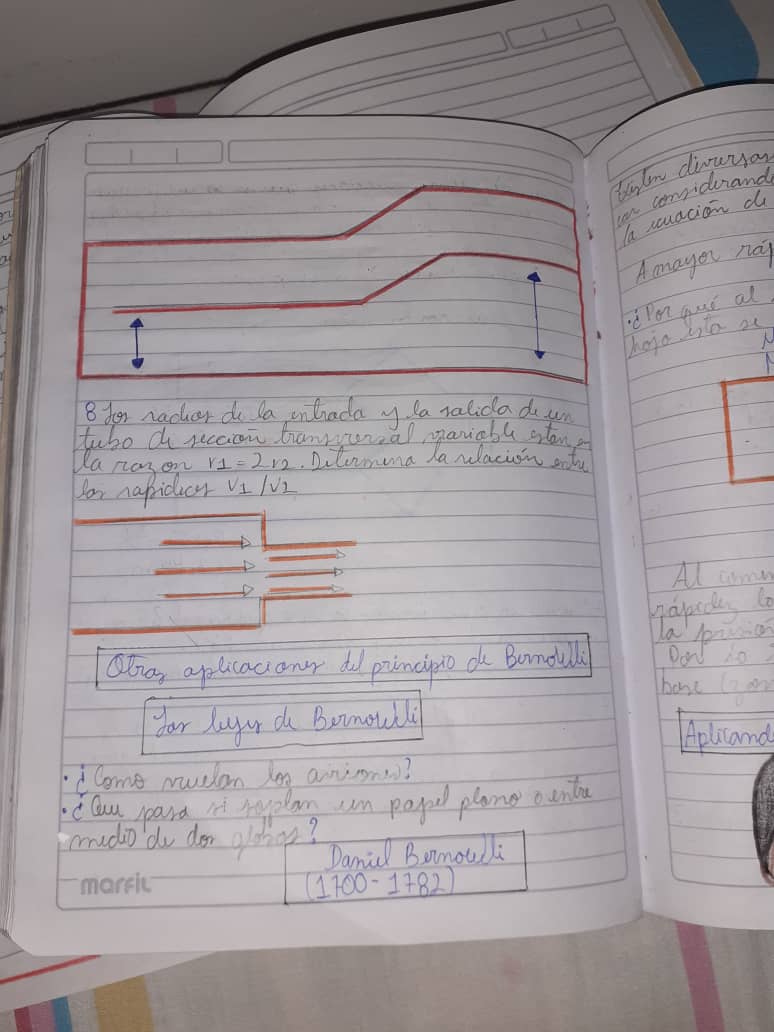 8 Los radios de la entrada y la salida de un
tubo de sección transversal variable estan en
la razon r1 = 2r2. Determina la relación entre
las rapideces V1/V2
Otras aplicaciones del principio de Bernoulli
Las leyes de Bernoulli
• ¿Como vuelan los aviones?
• ¿Que pasa si soplan un papel plano o entre
medio de dos globos?
Daniel Bernoulli
(1700 - 1782)
marfil
Existen diversas
considerand
la ecuación de
A mayor ráp
• ¿Por qué al
hoja esta se
Al aumen
rápidez
la presión
Por lo
base
Aplicand